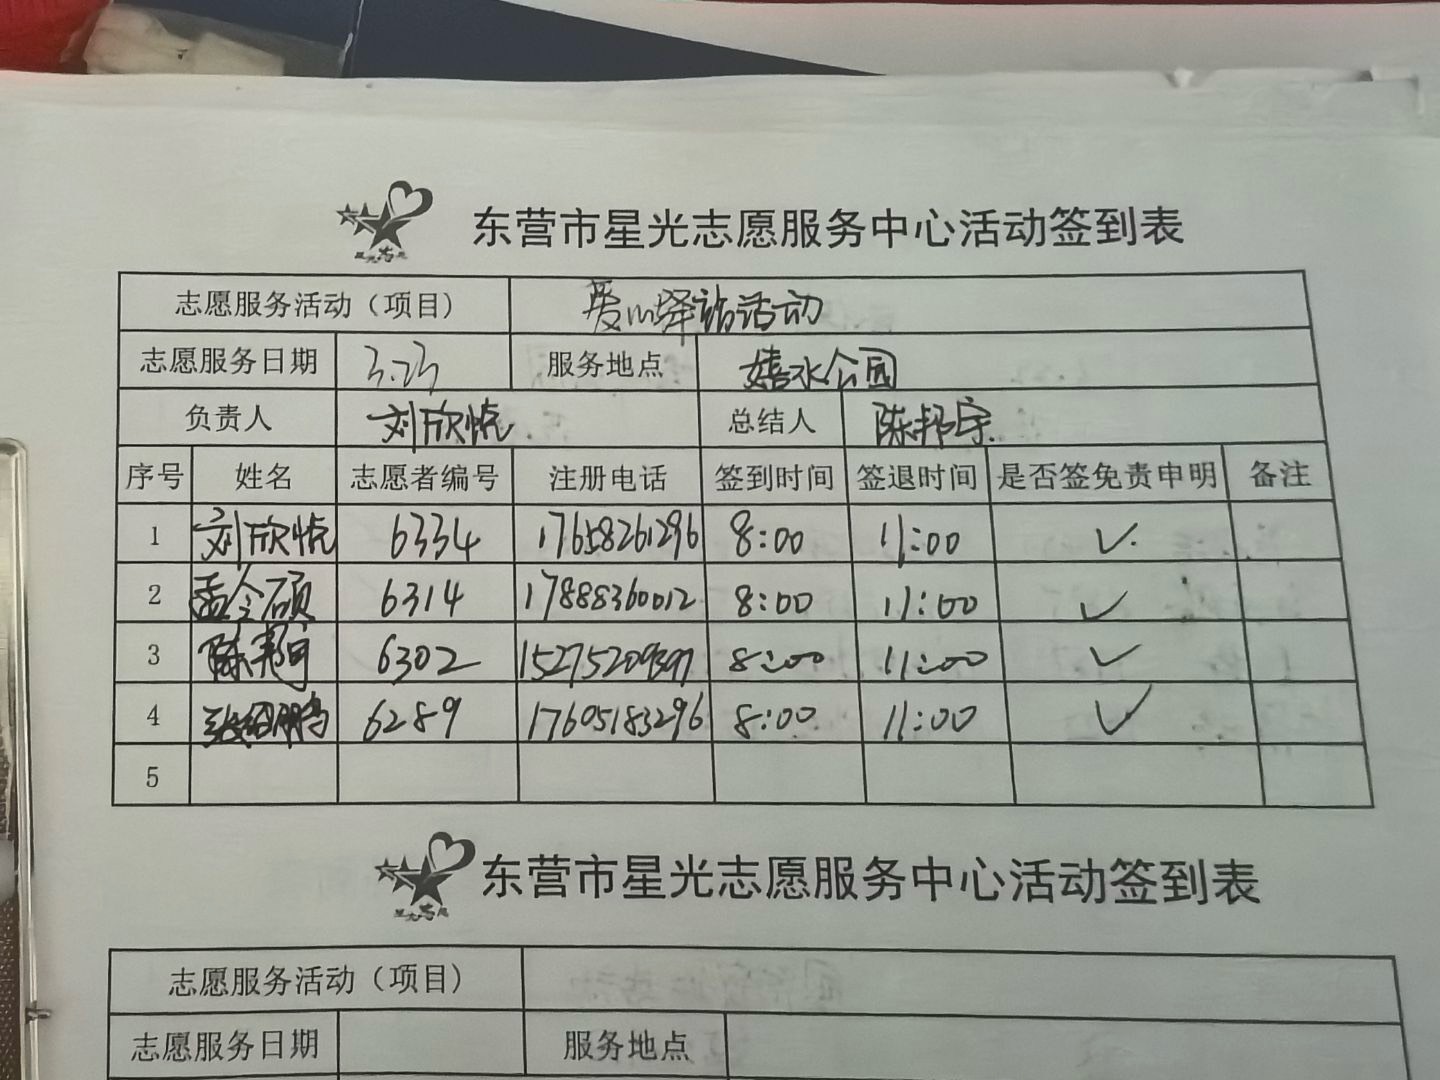 星光志愿
东营市星光志愿服务中心活动签到表
志愿服务活动（项目） 爱心驿站活动
志愿服务日期 3.23 服务地点 嬉水公园
负责人 刘欣悦 总结人 陈邦宇
序号 姓名 志愿者编号 注册电话 签到时间 签退时间 是否签免责申明 备注
1 刘欣悦 6334 17658261296 8:00 11:00 ✓
2 孟令硕 6314 17888360012 8:00 11:00 ✓
3 陈邦宇 6302 8:00 11:00 ✓
4 6289 17605183296 8:00 11:00 ✓
5
星光志愿
东营市星光志愿服务中心活动签到表
志愿服务活动（项目）
志愿服务日期 服务地点